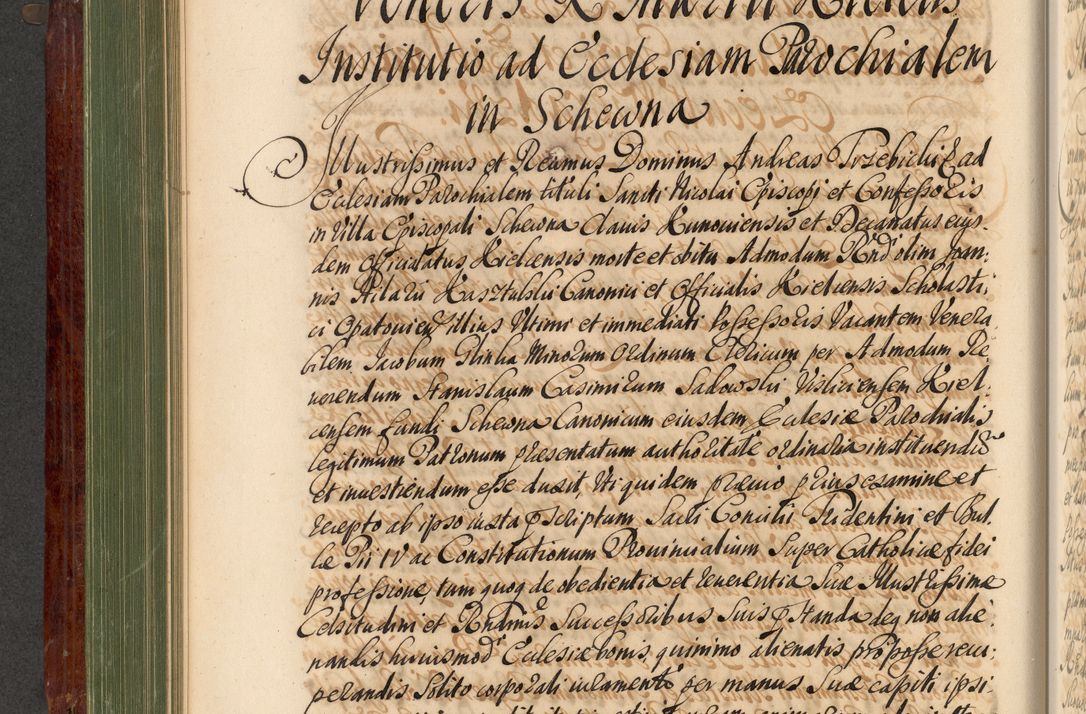 Institutio ad Ecclesiam Parochialem
in Schewna
Illustrissimus et Reamus Dominus Andreas Trzebicki & ad
Ecclesiam Parochialem tituli Sancti Nicolai Episcopi et Confessoris
in Villa Episcopali Schewna Clavis Kunoviensis et Decanatus eius-
dem Officialatus Kielcensis morte et obitu Admodum Rnd olim Joan-
nis Hilarii Canonici et Officialis Kielcensis Scholasti,
ci Opatovien Illius Ultimi et immediati Possessoris Vacantem Venera
bilem Jacobum Glinka Minorum Ordinum Clericum per Admodum Re
verendum Stanislaum Casimirum Sadowski Visliciensem Kiel-
censem fundi Schewna Canonicum eiusdem Ecclesiæ Parochialis
legitimum Patronum præsentatum authoritate ordinaria instituendũ
et investiendum esse duxit, Uti quidem prævio prius examine et
recepto ab ipso iuxta pscriptum Sacri Concilii Tridentini et Bul-
læ Pii IV ac Constitutionum Provincialium Super Catholicæ fidei
professione, tum quoq de obedientia et reverentia Suæ Illustrissimæ
Celsitudini et Successoribus Suis pstanda deq non alie,
nandis huiusmodi Ecclesiæ bonis, quinimo alienatis pro posse recu,
perandis Solito corporali iuramento per manus Suæ capiti ipsi,